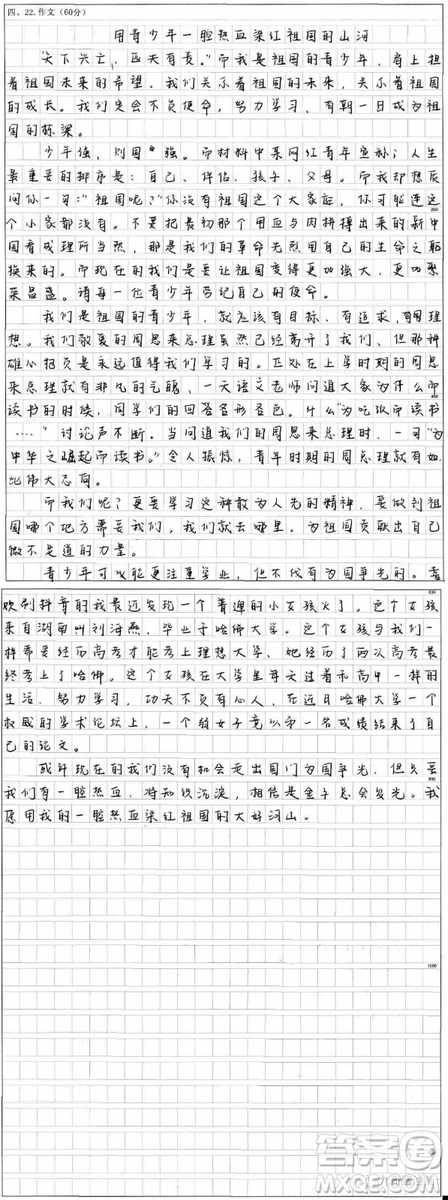 四、22.作文(60分)
用青少年一腔热血染红祖国的山河
"天下兴亡,匹夫有责。"而我是祖国的青少年,肩上担
着祖国未来的希望。我们关乎着祖国的未来,关乎着祖国
的成长。我们定会不负使命,努力学习、有朝一日成为祖
国的栋梁。
少年强,则国强。而材料中某网红青年宣称;人生
最重要的排序是:自己、伴侣、孩子、父母。而我却想反
问你一句:"祖国呢?"你没有祖国这个大家庭,你可能连这
个小家都没有。不要把最初那个用血与肉拼搏出来的新中
国看成理所当然,那是我们的革命先烈用自己的生命之躯
换来的。而现在的我们是要让祖国变得更加强大,更加繁
荣昌盛。请每一位青少年劳记自己的使命。
我们是祖国的青少年,就应该有目标、有追求,有理
想。我们敬爱的周恩来总理虽然已经离开了我们、但那种
雄心抱负是永远值得我们学习的。正处在上学时期的周恩
来总理就有非凡的气魄、一天语文老师问道大家为什么而
读书的时候,同学们的回答各形各色。什么"为吃饭而读书
....."讨论声不断。当问道我们的周恩来总理时、一句"为
中华之崛起而读书。"令人振惊,青年时期的周总理就有如
此伟大志向。
而我们呢?更要学习这种敢为人先的精神,要做到祖
国哪个地方需要我们,我们就去哪里。为祖国贡献出自己
微不足道的力量。
青少年可以能更注重学业,但不代有为国争光的。喜
欢刷抖音的我最近发现一个普通的小女孩火了。这个女孩
来自湖南叫刘海燕,毕业于哈佛大学。这个女孩与我们一
样需要经历高考才能考上理想大学、她经历了两次高考最
终考上了哈佛。这个女孩在大学里每天过着和高中一样的
生活、努力学习,功夫不负有心人,在近日哈佛大学一个
权威的学术论坛上,一个弱女子竟以第一名成绩结束了自
己的论文。
或许现在的我们没有机会走出国门为国争光,但只要
我们有一腔热血,将知识沉淀,相信是金子总会发光。我
愿用我的一腔热血染红祖国的大好河山。
答案圈
MXQE.COM